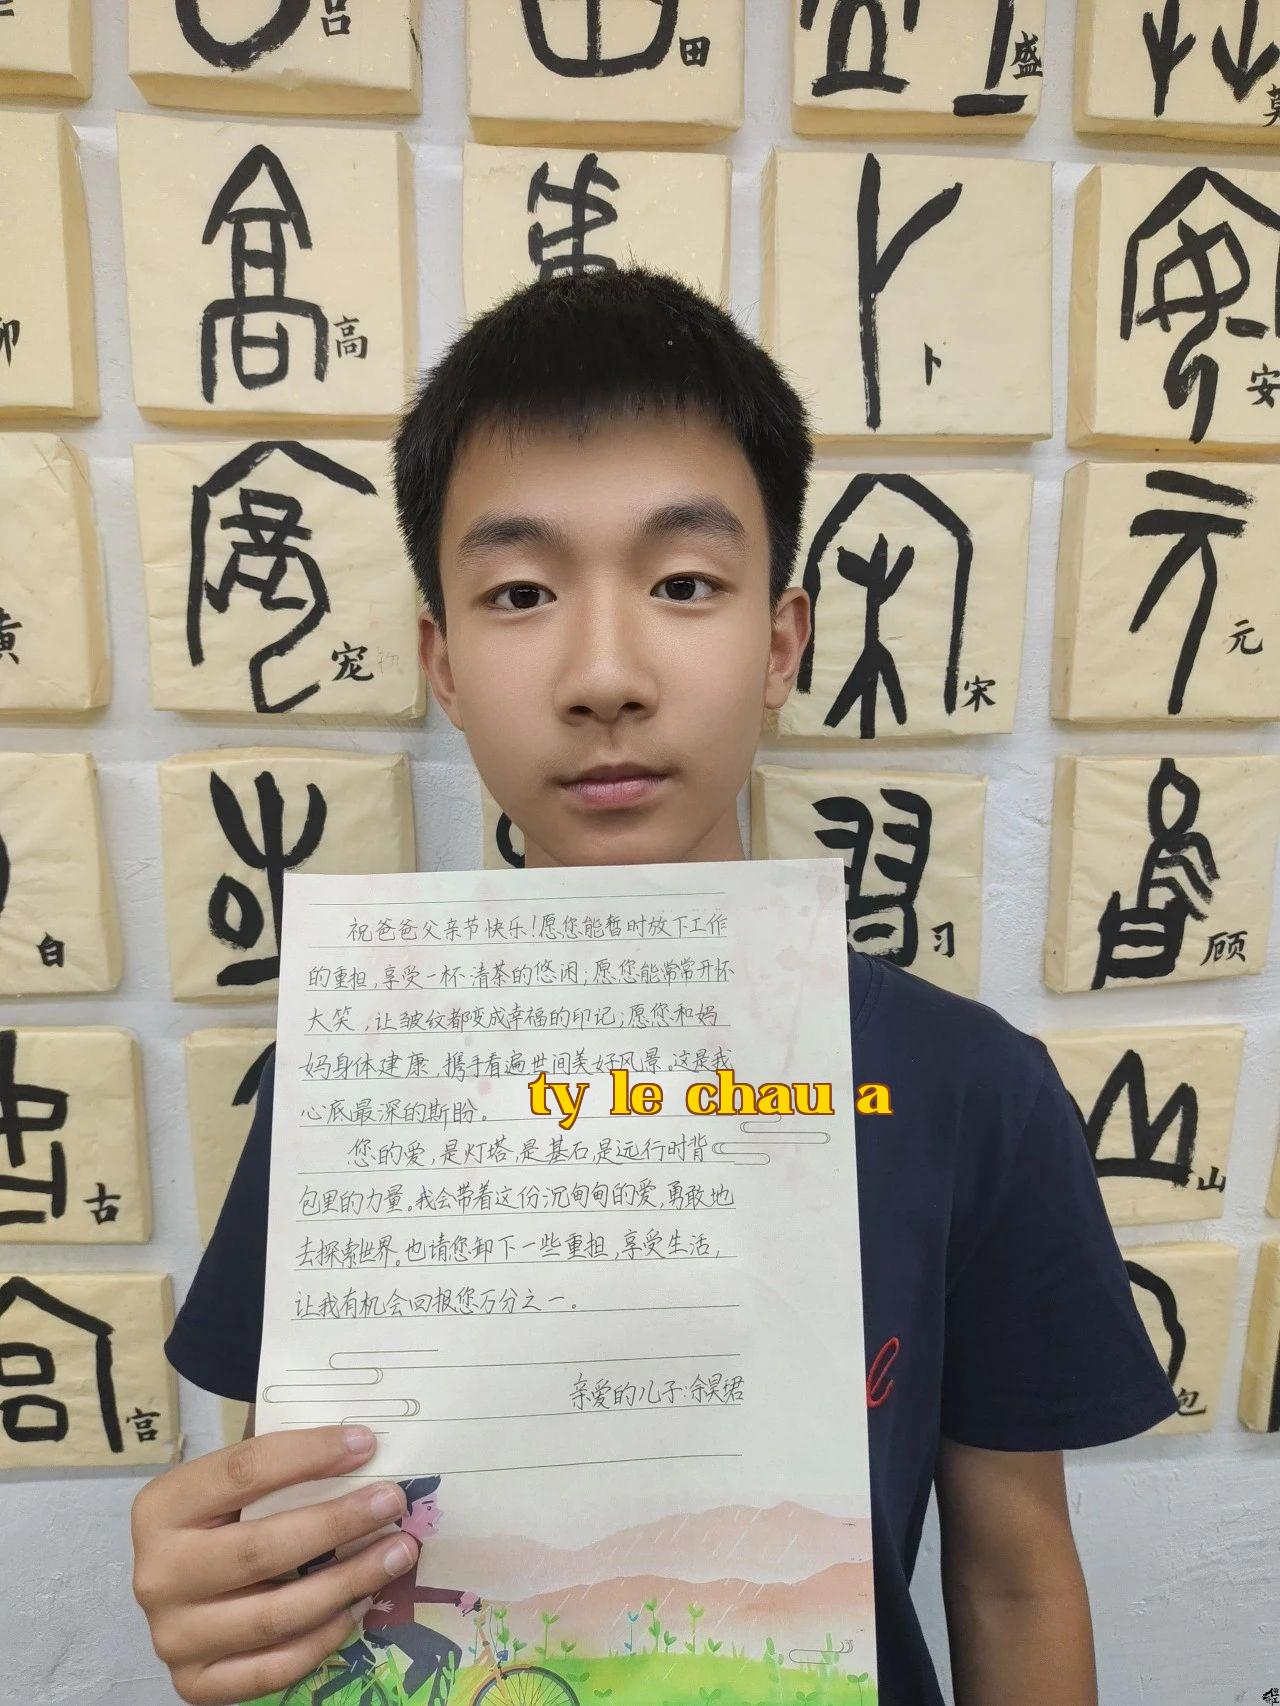 吕
田
盛
莫
卯
高
卜
安
黄
宠
宋
元
自
习
顾
祝爸爸父亲节快乐！愿您能暂时放下工作
的重担，享受一杯清茶的悠闲；愿您能常常开怀
大笑，让皱纹都变成幸福的印记；愿您和妈
妈身体建康，携手看遍世间美好风景。这是我
心底最深的斯盼。
ty le chau a
您的爱，是灯塔，是基石，是远行时背
包里的力量。我会带着这份沉甸甸的爱，勇敢地
去探索世界。也请您卸下一些重担，享受生活，
让我有机会回报您万分之一。
亲爱的儿子：余昊珺
古
山
宫
包